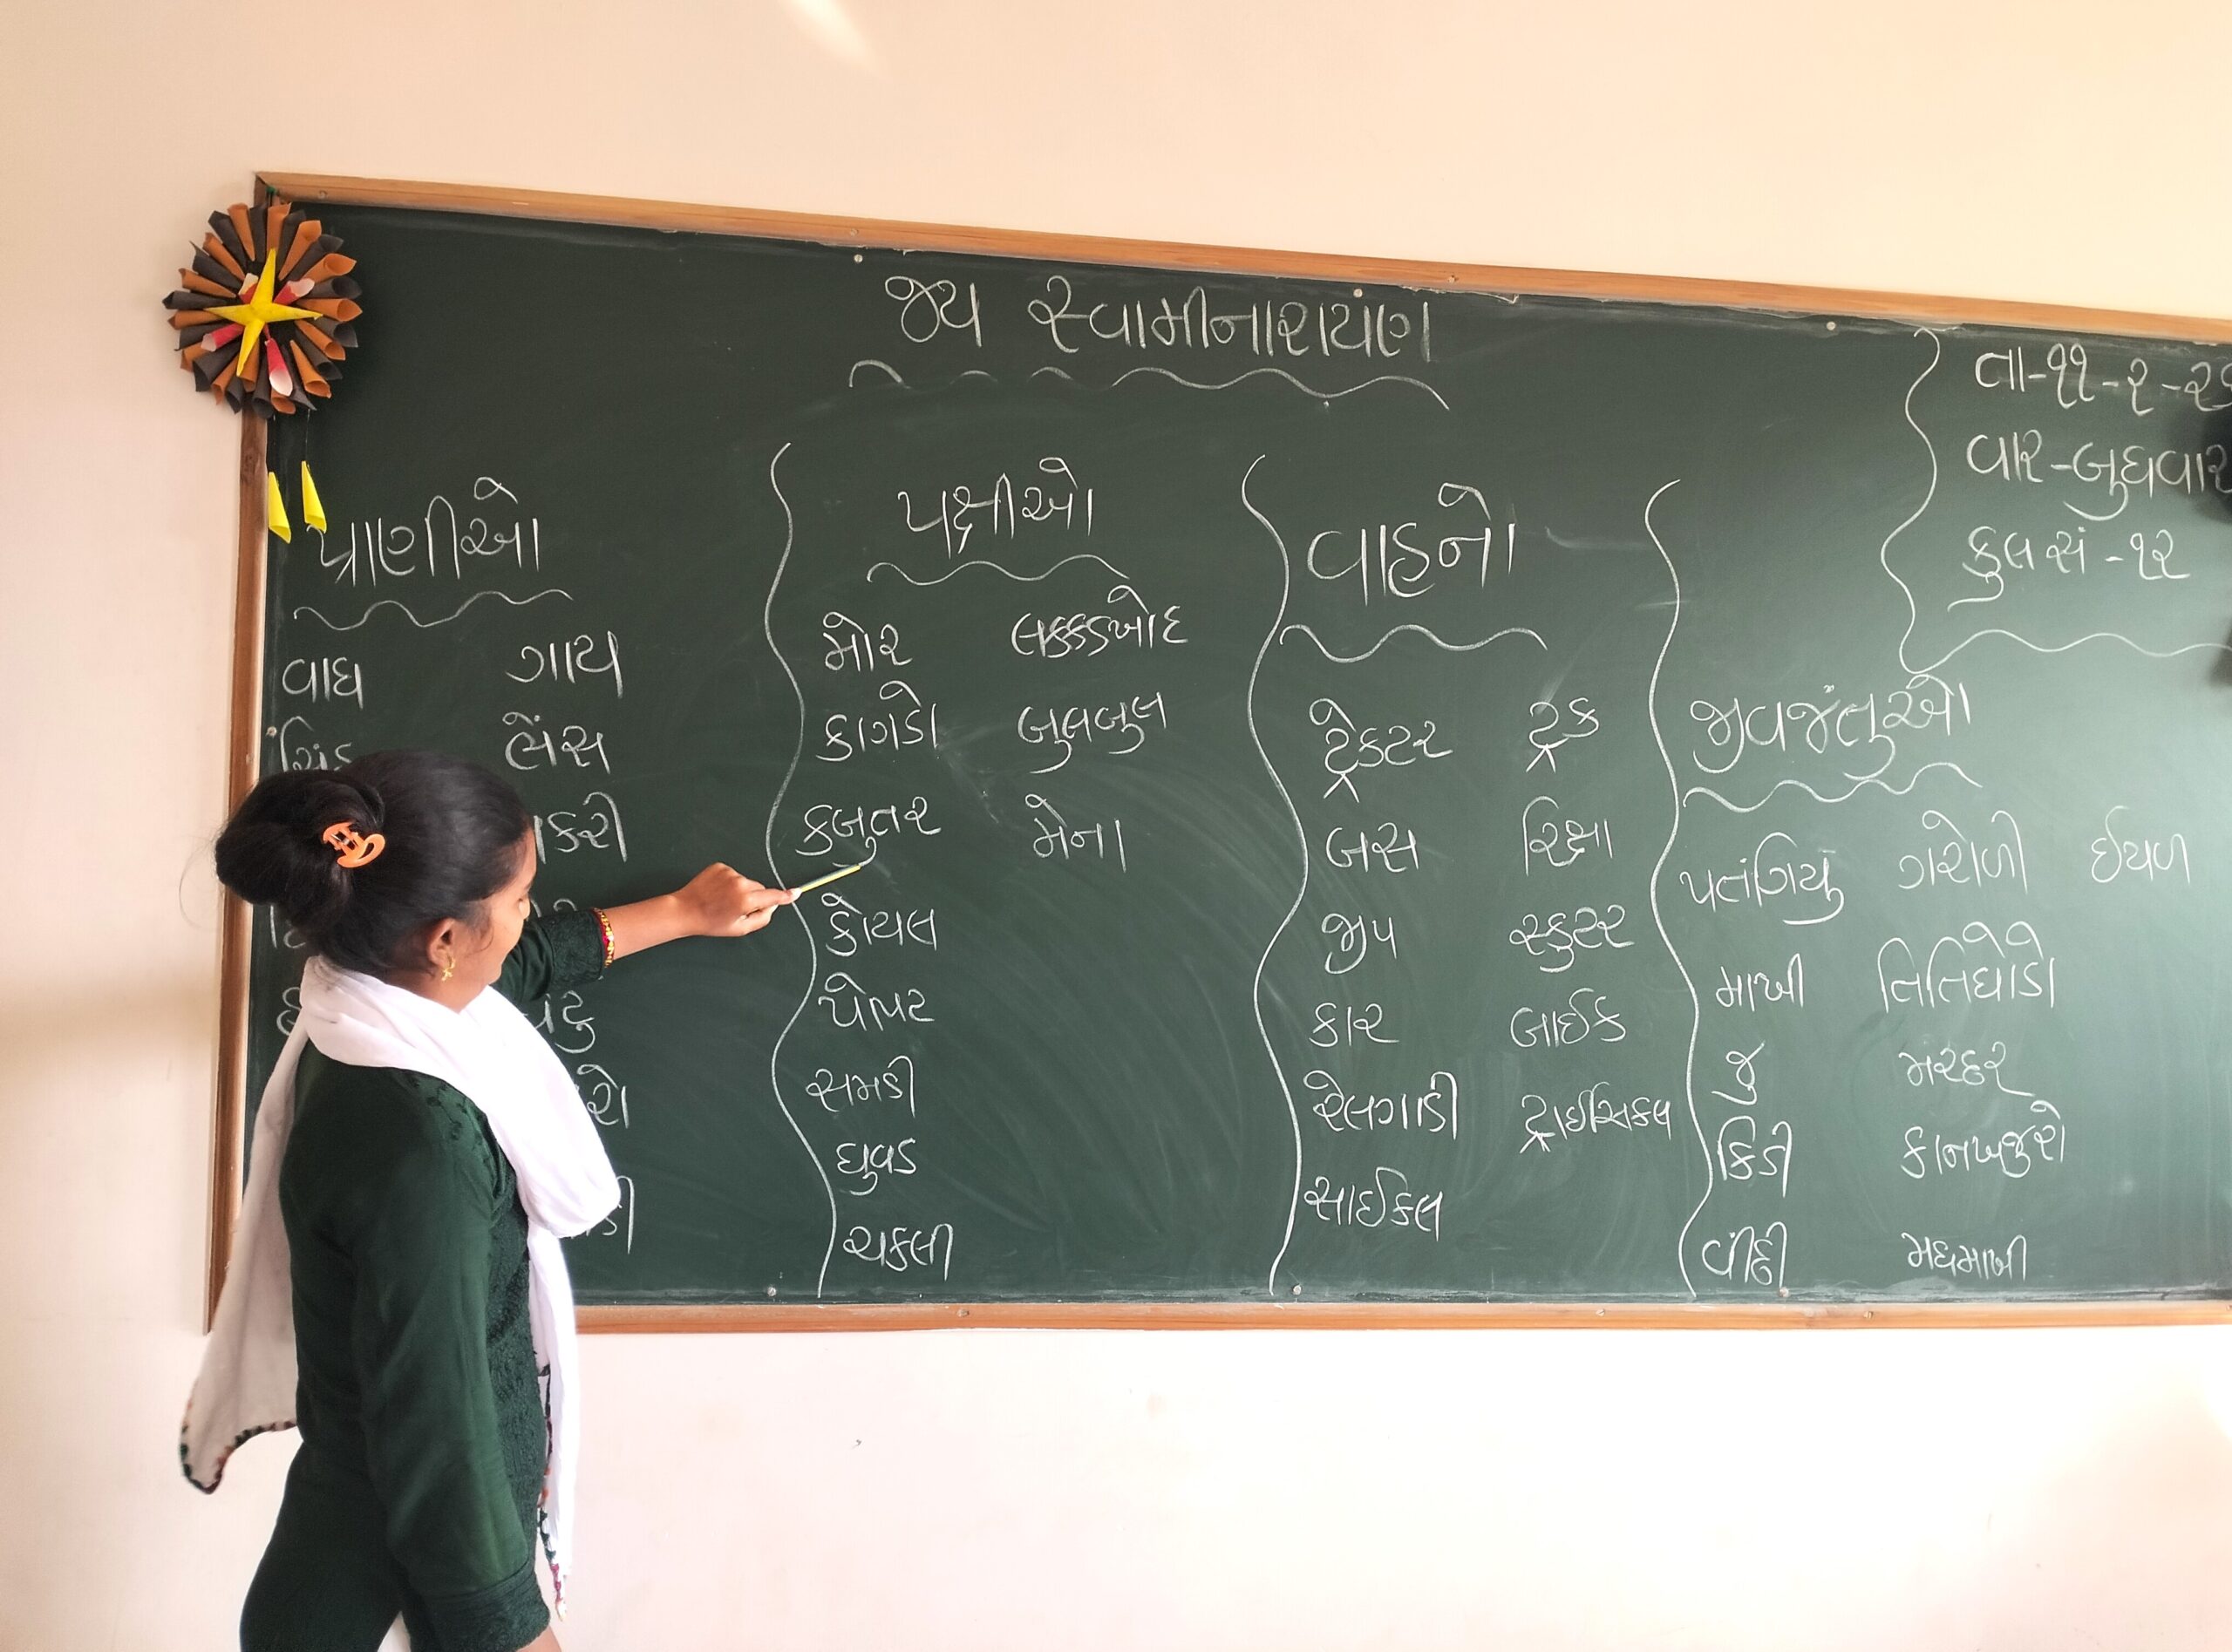 જય સ્વામીનારાયણ
તા-૧૧-૨-૨૬
વાર-બુધવાર
કુલ સં -૧૨
પ્રાણીઓ
વાઘ ગાય
સિંહ ભેંસ
પક્ષીઓ
મોર લક્કડખોદ
કાગડો બુલબુલ
કબુતર મેના
કોયલ
પોપટ
સમડી
ઘુવડ
ચકલી
વાહનો
ટ્રેકટર ટ્રક
બસ રિક્ષા
જીપ સ્કુટર
કાર બાઈક
રેલગાડી ટ્રાઈસિકલ
સાઈકલ
જીવજંતુઓ
પતંગિયું ગરોળી ઈયળ
માખી તિતિઘોડો
જુ મચ્છર
કિડી કાનખજુરો
વીંછી મધમાખી